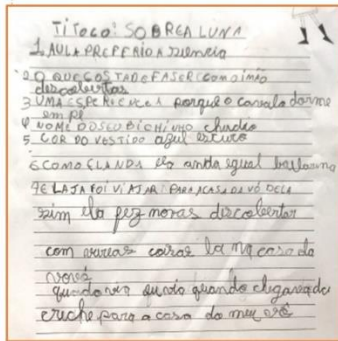 TITOLO: SOBRE A LUNA
1. AULA PREFERIDA siencia
2 O QUE GOSTA DE FASER: com a imão
descobertas
3 UMA ESPERIENCIA porque o cavalo dorme
em pé
4 NOME DO SEU BICHINHO
5. COR DO VESTIDO azul escuro
6 COMO ELANDA ela anda igual bailarina
7 ELA JA FOI VIAJAR: PARA A CASA DA VÓ DELA
sim ela fez novas discobertas
com coisas la na casa da
vovó
quando quando chegava da
creche para a casa do meu vô